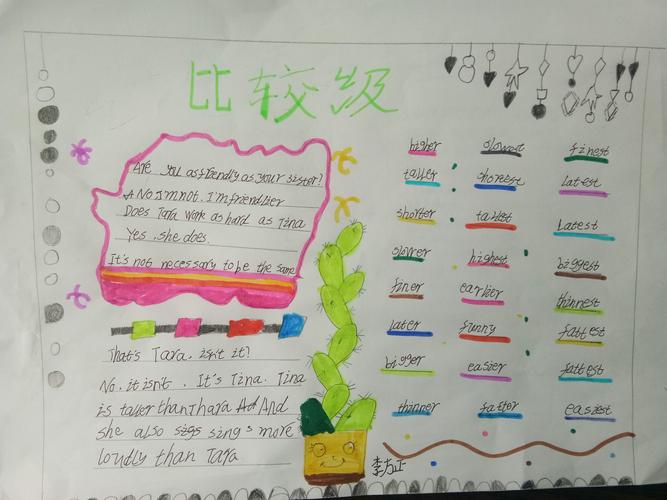 比较级
Are you as friendly as your sister?
No I'm not. I'm friendlier
Does Tara work as hard as Tina
Yes, she does.
It's not necessary to be the same
That's Tara, isn't it?
No, it isn't. It's Tina. Tina
is taller than Thara And
she also sings more
loudly than Tara
higher slowest finest
taller shorest latest
shorter tallet Latest
slower highest biggest
finer earlier thinnest
later funny fattest
bigger easier fattest
thinner fatter easiest
李方正